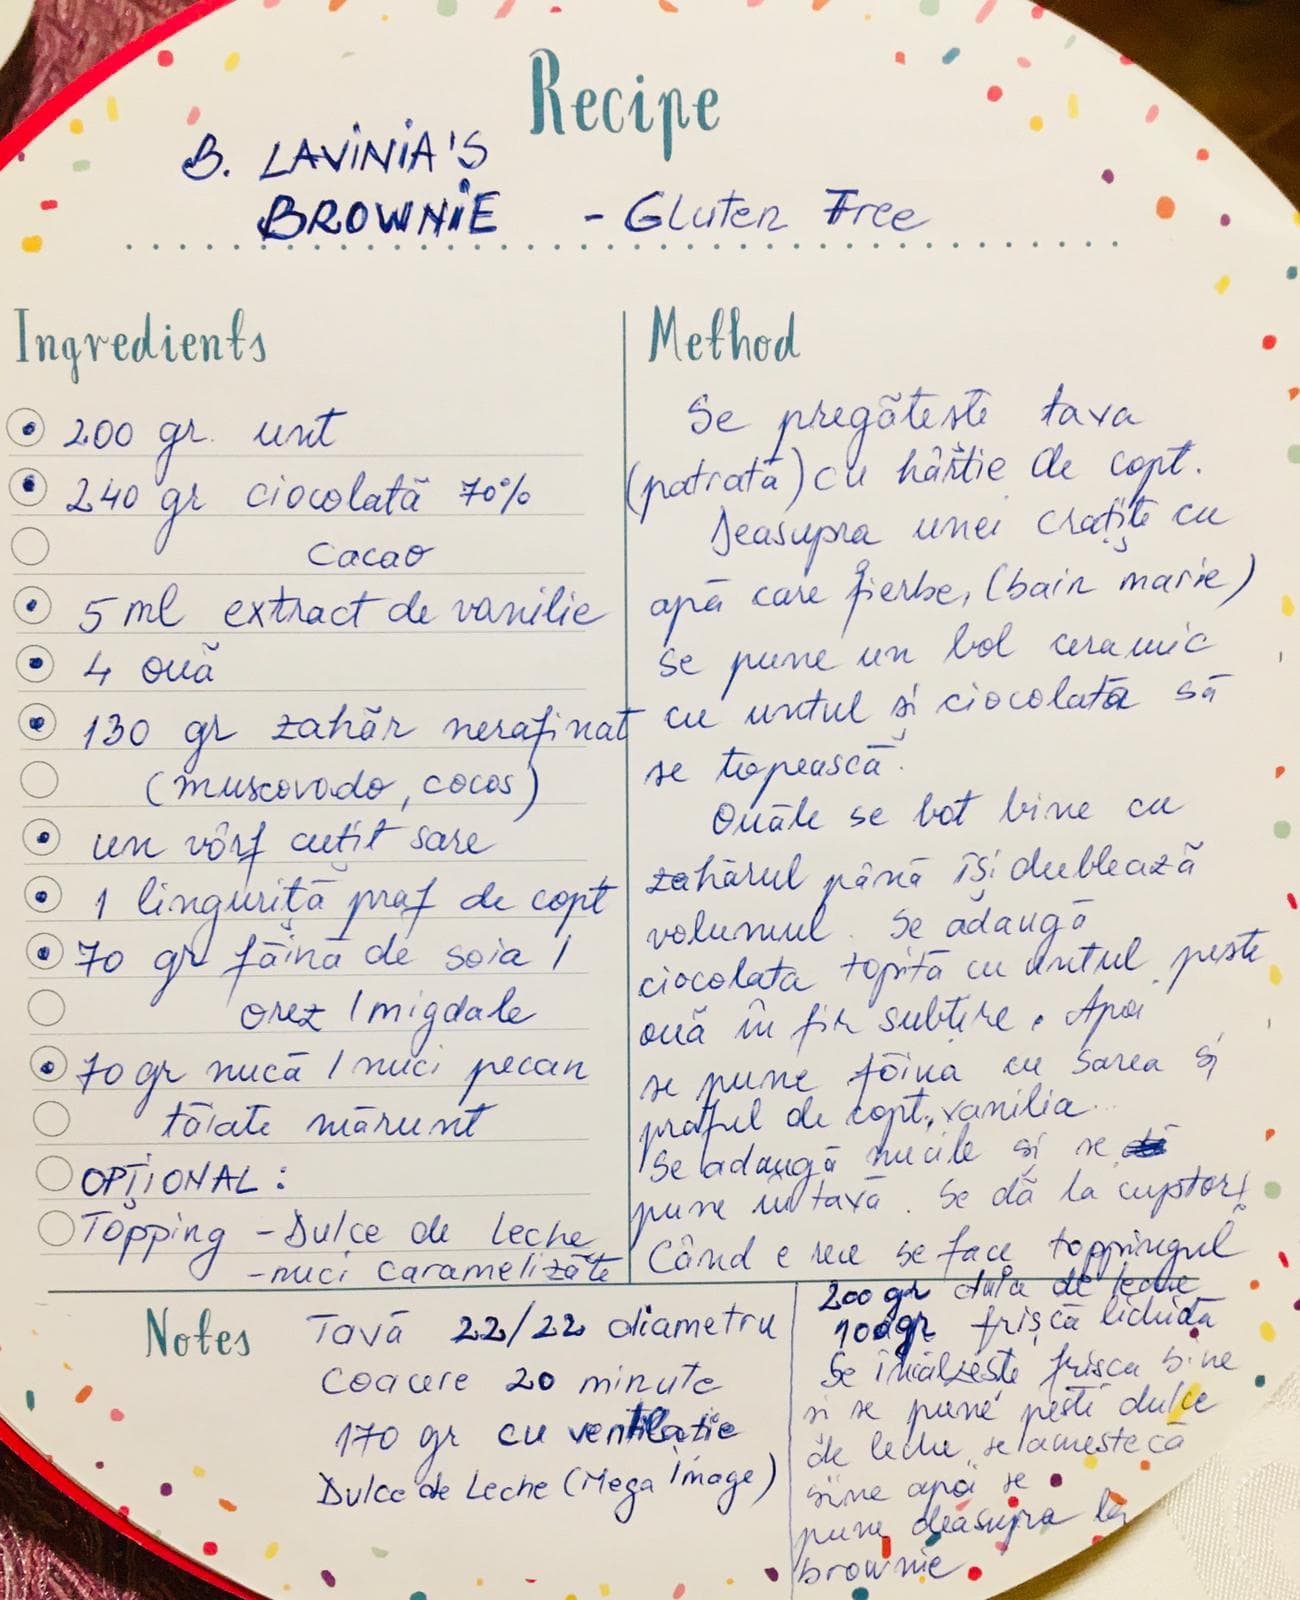 Recipe
B. LAViNiA'S
BROWNiE - Gluten Free
Ingredients
200 gr. unt
240 gr ciocolată 70%
cacao
5 ml extract de vanilie
4 ouă
130 gr zahăr nerafinat
(muscovado, cocos)
un vârf cuțit sare
1 linguriță praf de copt
70 gr făină de soia /
orez / migdale
70 gr nucă / nuci pecan
tăiate mărunt
OPȚiONAL:
Topping - Dulce de leche
- nuci caramelizate
Method
Se pregătește tava
(patrată) cu hârtie de copt.
Deasupra unei cratițe cu
apă care fierbe, (bain marie)
se pune un bol ceramic
cu untul și ciocolata să
se topească.
Ouăle se bat bine cu
zahărul până își dublează
volumul. Se adaugă
ciocolata topită cu untul peste
ouă în fir subțire. Apoi
se pune făina cu sarea și
praful de copt, vanilia..
Se adaugă nucile și se
pune în tavă. Se dă la cuptor!
Când e rece se face toppingul
200 gr dulce de leche
100gr frișcă lichidă
Se încălzește frișca bine
si se pune peste dulce
de leche, se amestecă
bine apoi se
pune deasupra la
brownie
Notes
Tavă 22/22 diametru
Coacere 20 minute
170 gr cu ventilatie
Dulce de Leche (Mega Image)